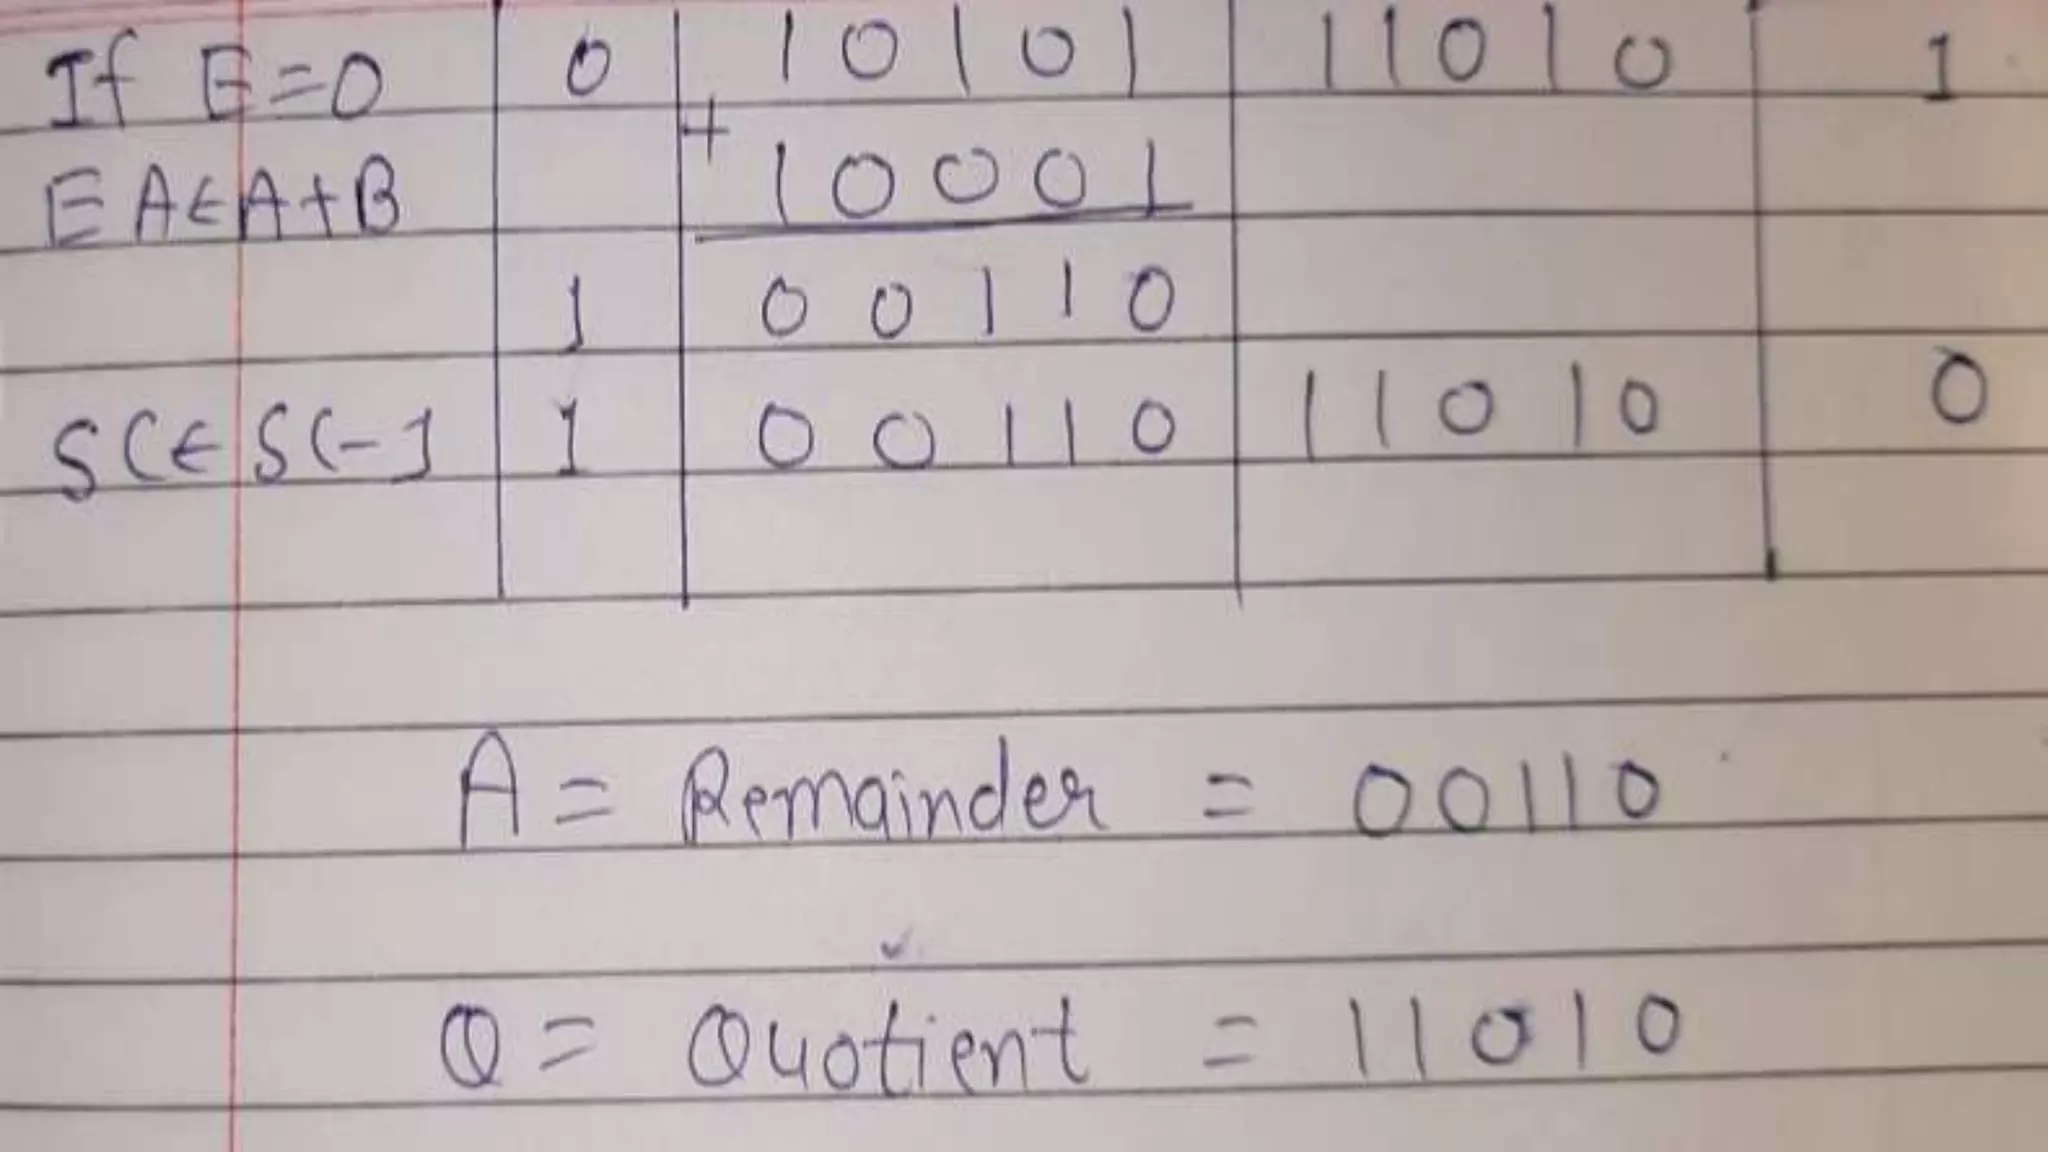 If E=0 0 10101 11010 1
EA←A+B + 10001
1 00110
SC←SC-1 1 00110 11010 0
A = Remainder = 00110
Q = Quotient = 11010